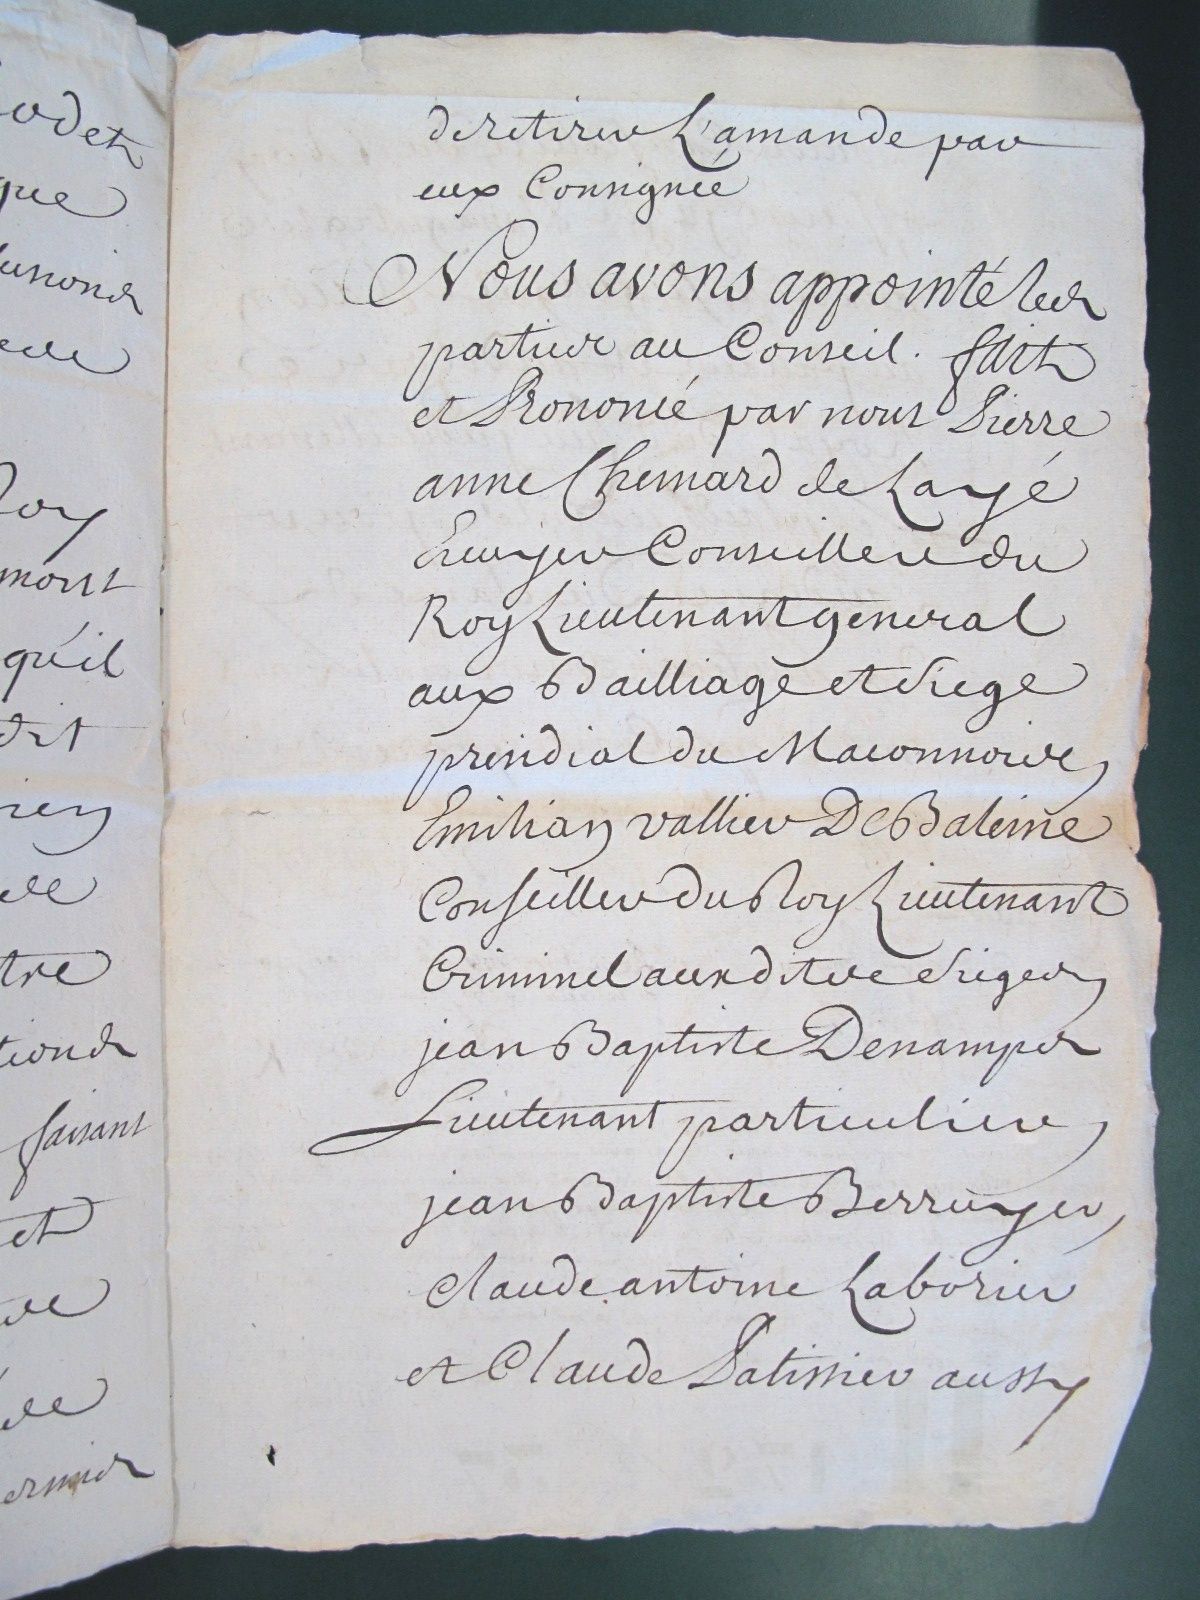 odet
que
de retirer L'amande par
eux Consignée
Nous avons appointé les
parties au Conseil. fait
et Prononcé par nous Pierre
anne Chemard de Layé
Ecuyer Conseiller du
Roy Lieutenant general
aux Bailliage et siege
presidial du Maconnois,
Emilian vallier De Baleine
Conseiller du Roy Lieutenant
Criminel auxdites sieges,
jean Baptiste Denamps
Lieutenant particulier,
jean Baptiste Berruyer,
Claude antoine Laborier
et Claude Patissier aussy
Roy
qu'il
dit
tre
tions
faisant
et